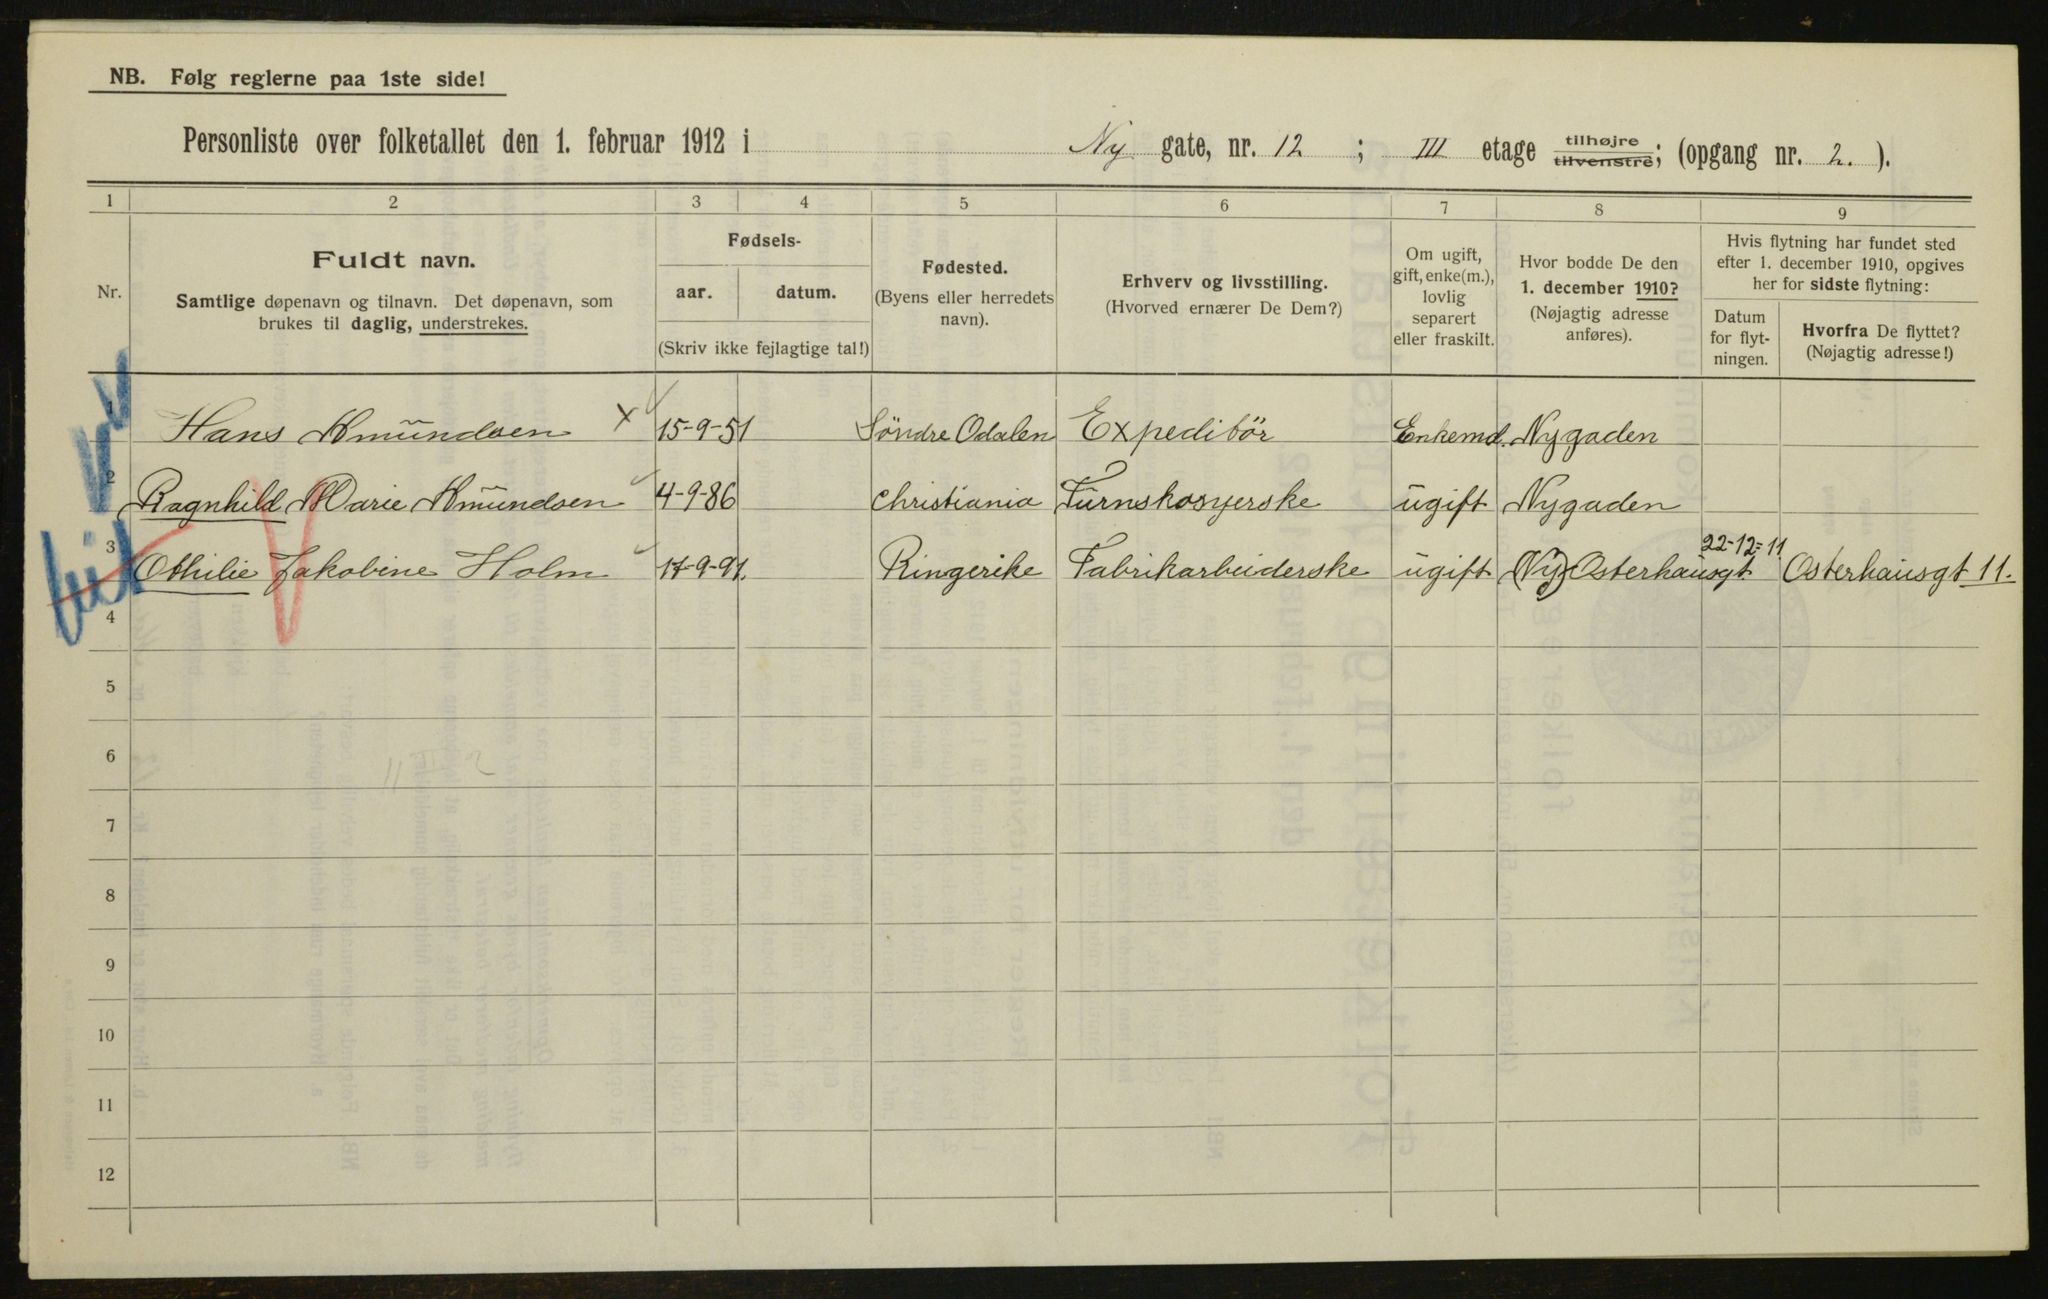 NB. Følg reglerne paa 1ste side!
Personliste over folketallet den 1. februar 1912 i Ny gate, nr. 12 ; III etage tilhøjre tilvenstre; (opgang nr. 2. ).
1 2 3 4 5 6 7 8 9
Nr.
Fuldt navn.
Samtlige døpenavn og tilnavn. Det døpenavn, som
brukes til daglig, understrekes.
Fødsels-
aar. datum.
(Skriv ikke fejlagtige tal!)
Fødested.
(Byens eller herredets
navn).
Erhverv og livsstilling.
(Hvorved ernærer De Dem?)
Om ugift,
gift, enke(m.),
lovlig
separert
eller fraskilt.
Hvor bodde De den
1. december 1910?
(Nøjagtig adresse
anføres).
Hvis flytning har fundet sted
efter 1. december 1910, opgives
her for sidste flytning:
Datum
for flyt-
ningen.
Hvorfra De flyttet?
(Nøjagtig adresse!)
1 Hans Amundsen X 15-9-51 Söndre Odalen Expeditör Enkemd. Nygaden
2 Ragnhild Marie Amundsen 4-9-86 Christiania Nygaden ugift
3 Othilie Jakobine Holm 9-91. Ringerike Fabrikarbeiderske ugift (Ny) Osterhausgt 22-12-11 Osterhausgt 11.
4
5
6
7
8
9
10
11
12